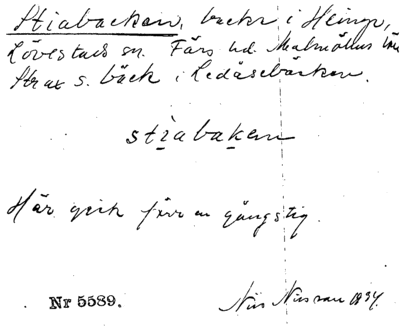 Stiabacken, backe i Heinge,
Lövestads sn. Färs hd. Malmöhus län
Strax s. bäck i Ledåsebäcken.
stiabaken
Här gick förr en gångstig.
Nr 5589. Nils Nilsson 1934.